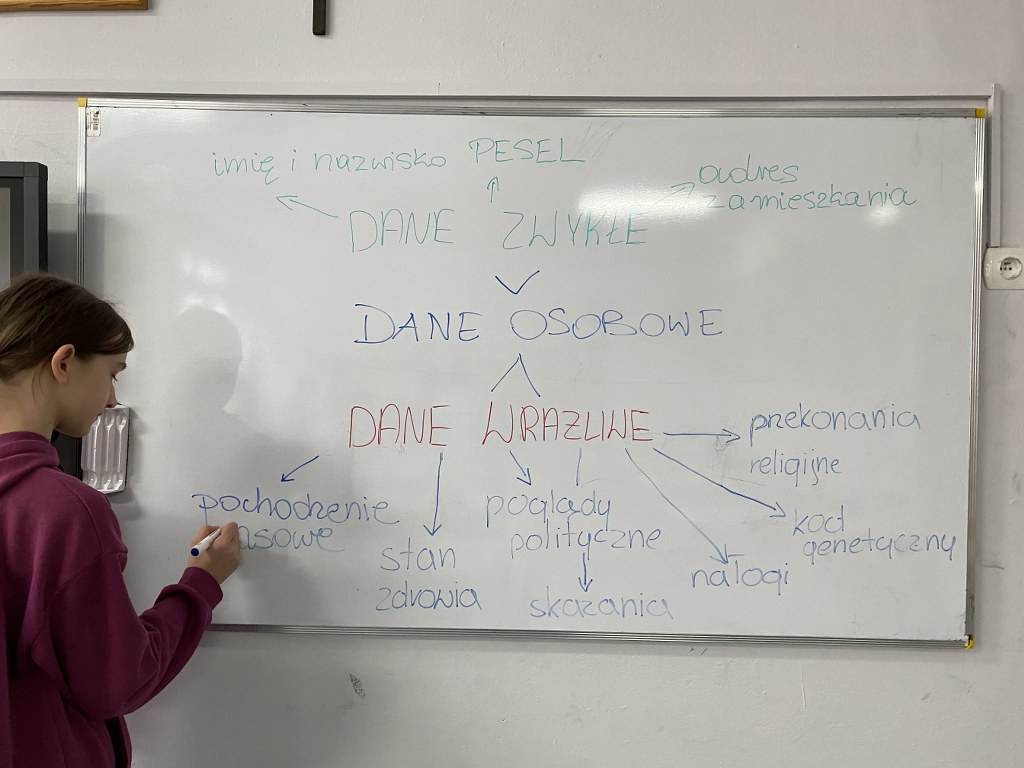 imię i nazwisko PESEL
adres
zamieszkania
DANE ZWYKŁE
DANE OSOBOWE
DANE WRAZLIWE
przekonania
religijne
pochodzenie
stan
zdrowia
poglądy
polityczne
skazania
nalogi
kod
genetyczny